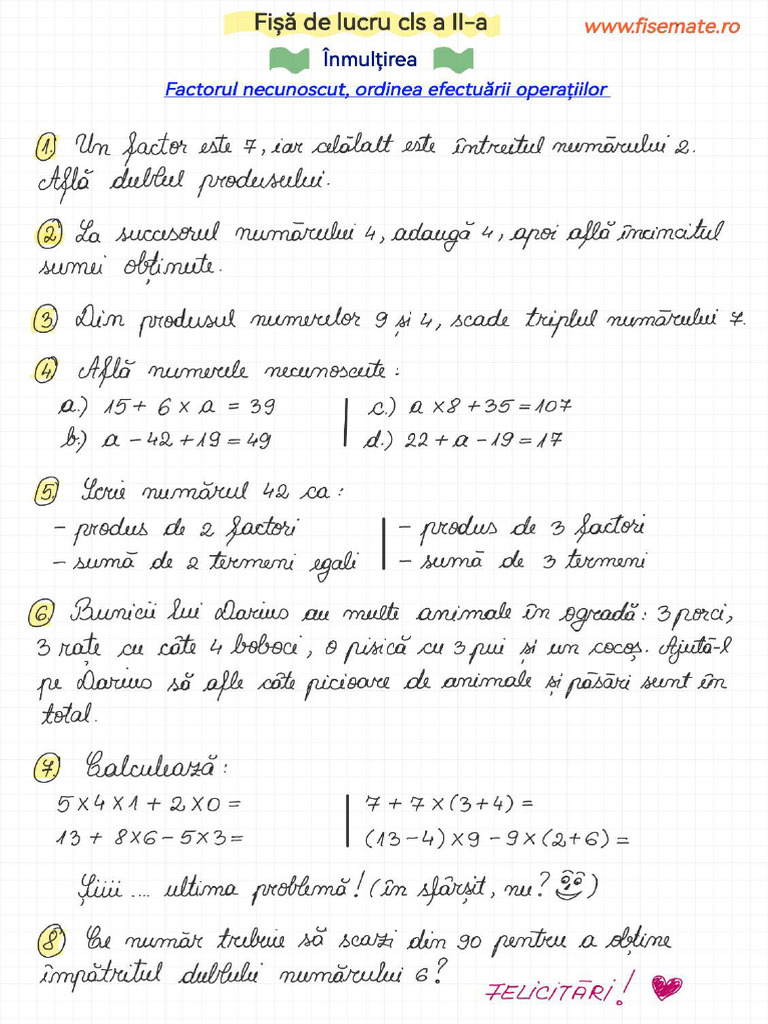 Fișă de lucru cls a II-a
www.fisemate.ro
Înmulțirea
Factorul necunoscut, ordinea efectuării operațiilor
1. Un factor este 7, iar celălalt este întreitul numărului 2.
Află dublul produsului.
2. La succesorul numărului 4, adaugă 4, apoi află încincitul
sumei obținute.
3. Din produsul numerelor 9 și 4, scade triplul numărului 7.
4. Află numerele necunoscute:
a.) 15 + 6 x a = 39
c.) a x 8 + 35 = 107
b.) a - 42 + 19 = 49
d.) 22 + a - 19 = 17
5. Scrie numărul 42 ca:
- produs de 2 factori
- produs de 3 factori
- sumă de 2 termeni egali
- sumă de 3 termeni
6. Bunicii lui Darius au multe animale în ogradă: 3 porci,
3 rațe cu câte 4 boboci, o pisică cu 3 pui și un cocoș. Ajută-l
pe Darius să afle câte picioare de animale și păsări sunt în
total.
7. Calculează:
5 x 4 x 1 + 2 x 0 =
7 + 7 x (3 + 4) =
13 + 8 x 6 - 5 x 3 =
(13 - 4) x 9 - 9 x (2 + 6) =
Șiiii .... ultima problemă! (în sfârșit, nu? )
8. Ce număr trebuie să scazi din 90 pentru a obține
împătritul dublului numărului 6?
FELICITĂRI!